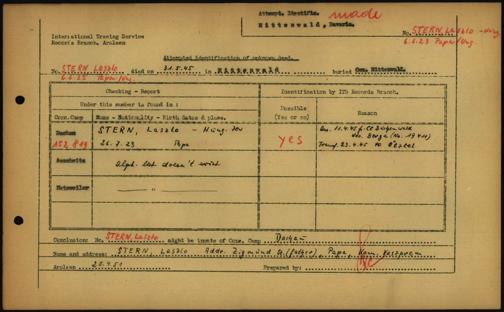 Attempt. Identific. made
Mittenwald, Bavaria.
International Tracing Service
Records Branch, Arolsen
No. STERN, Laszlo - Hung
6.6.23 Papa/Ung.
Attempted Identification of unknown dead.
No. STERN Laszlo died on 31.5.45 in Mittenwald buried Cem. Mittenwald.
6.6.23 Papa/Ung.
Checking - Report
Identification by ITS Records Branch.
Under this number is found in:
Possible
(Yes or no)
Reason
Conc. Camp Name - Nationality - Birth dates & place.
Dachau STERN, Laszlo - Hung. Jew
152 849 26.7.23 Papa
yes
Transf. 23.4.45 to
Auschwitz Alph. list doesn't exist
Natzweiler "
Conclusion: No. STERN, Laszlo might be inmate of Conc. Camp Dachau
Name and address: STERN, Laszlo Addr. Zigmund St. (father), Papa, Kom. Veszprem
Arolsen 25.4.51 Prepared by: